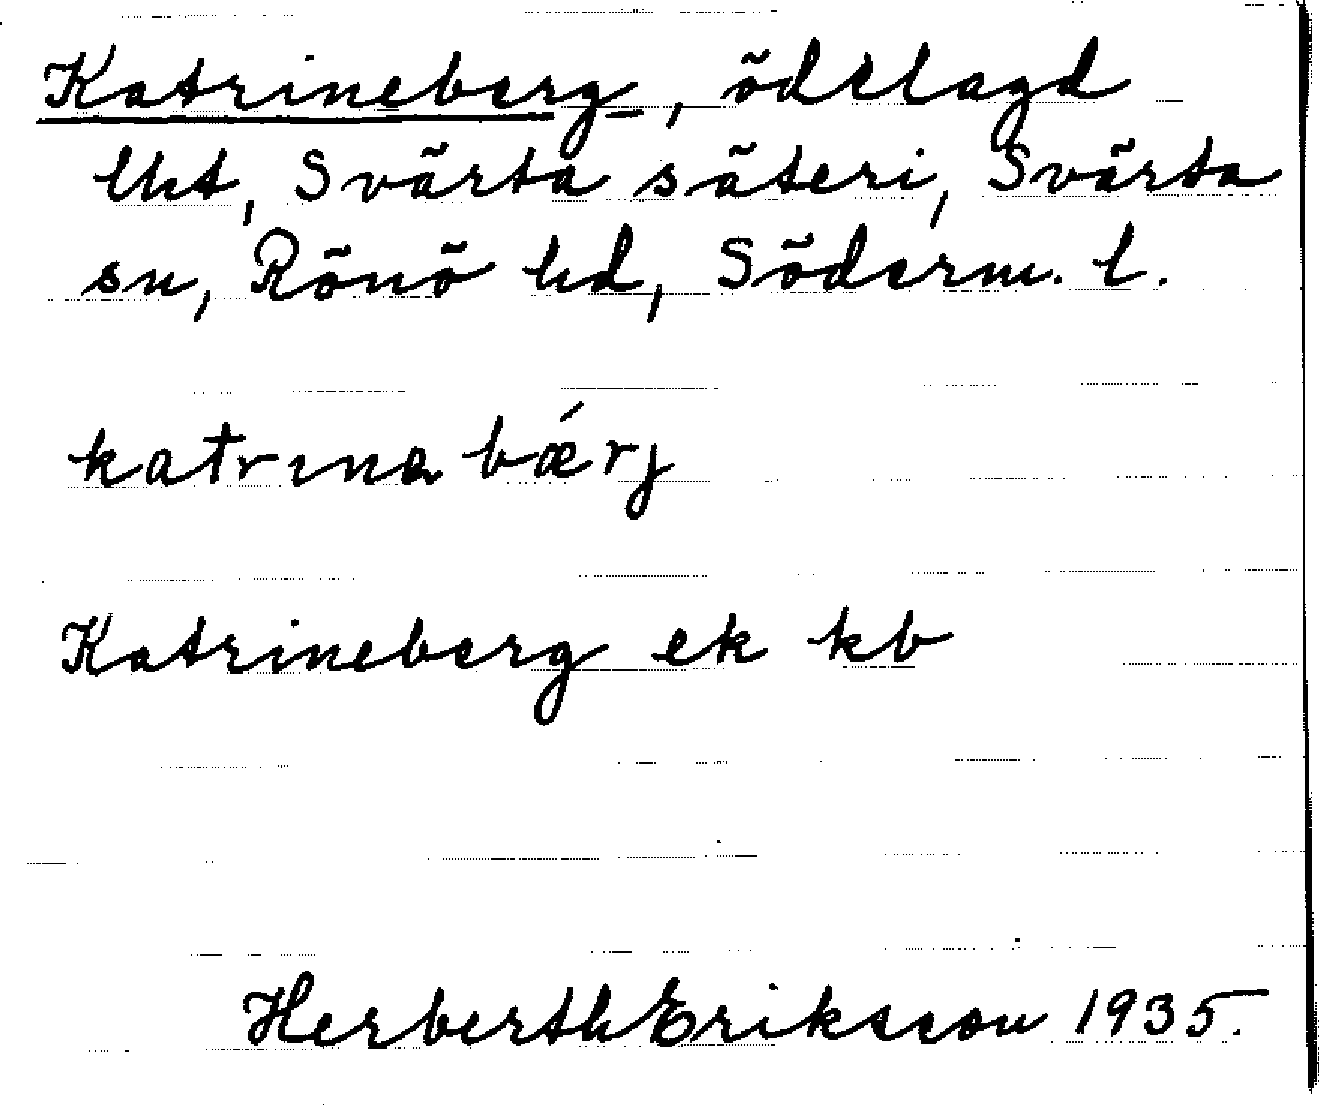 Katrineberg, ödelagd
lht, Svärta säteri, Svärta
sn, Rönö hd, Söderm. l.
katrına bǽrj
Katrineberg ek kb
Herberth Eriksson 1935.